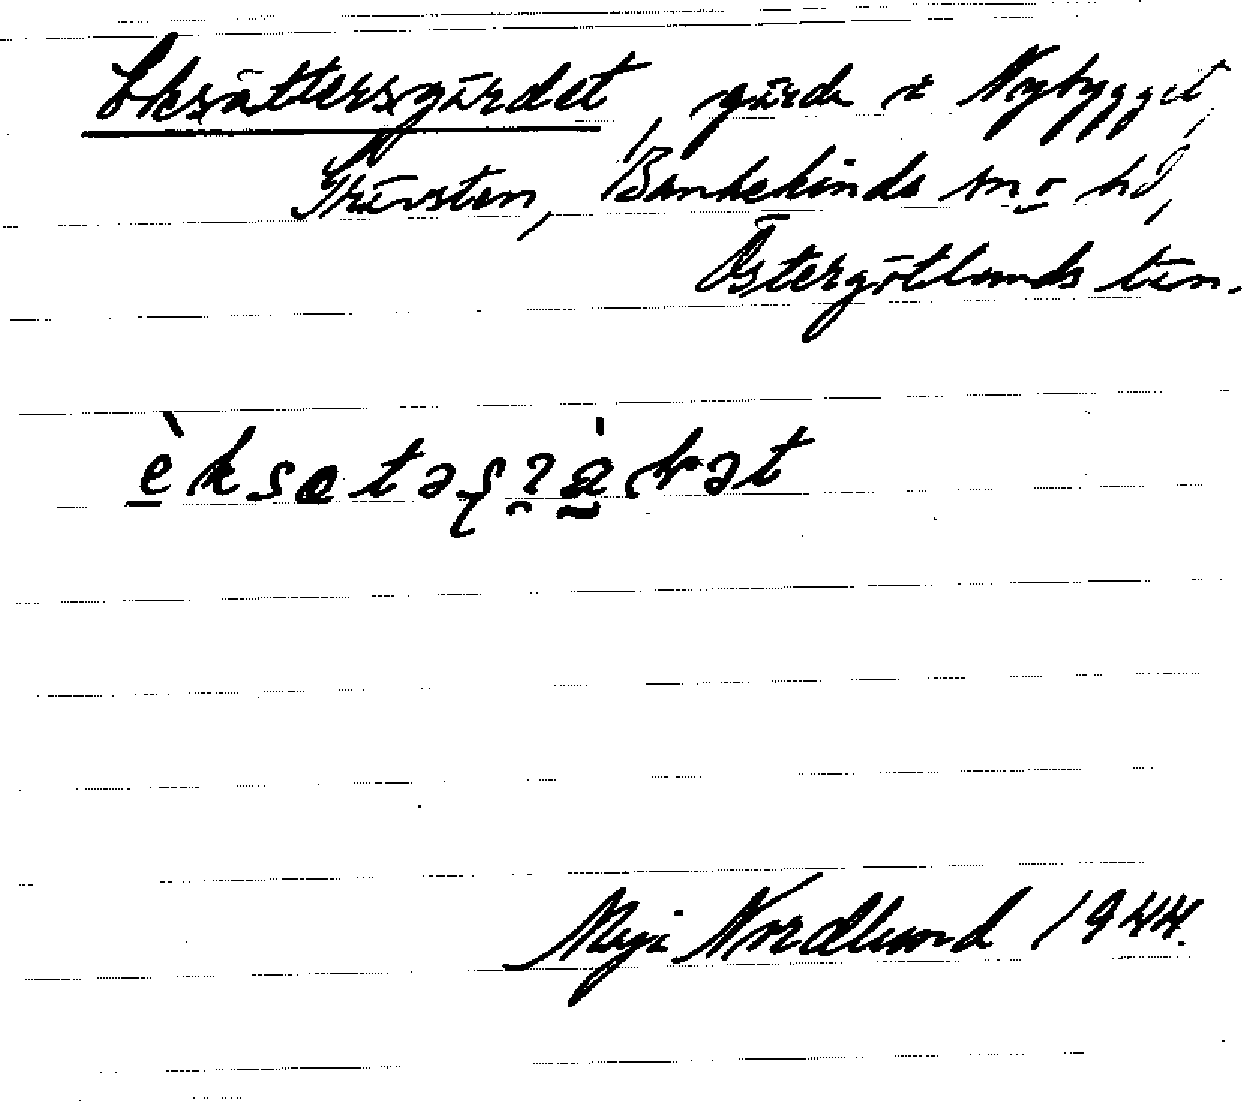 Eksättersgärdet, gärde i Nybygget,
Skärsten, Bankekinds sn o hd,
Östergötlands län.
èksatəʂɂàɖət
Maja Nordlund 1944.